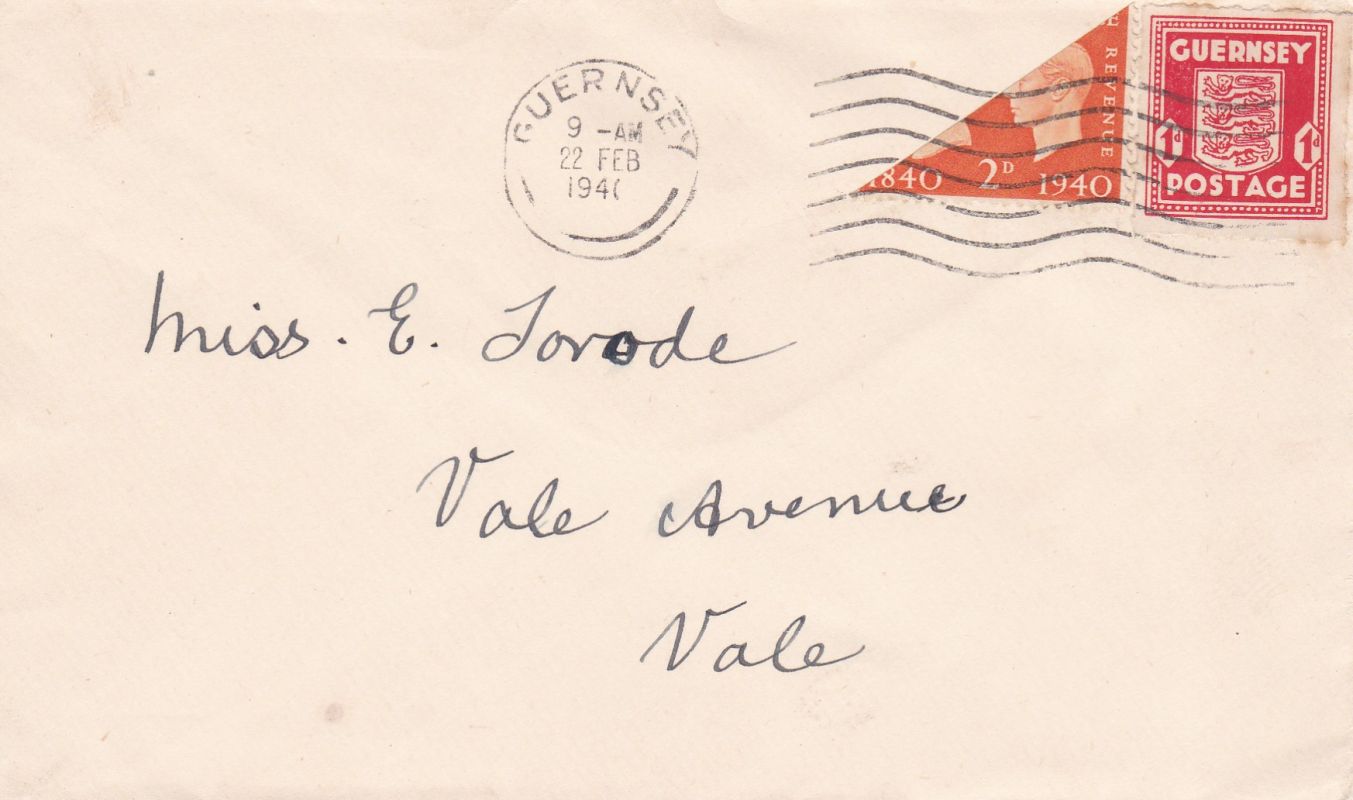 GUERNSEY
9 -AM
22 FEB
194
E REVENUE
1840 2D 1940
GUERNSEY
1d 1d
POSTAGE
Miss. E. Torode
Vale Avenue
Vale